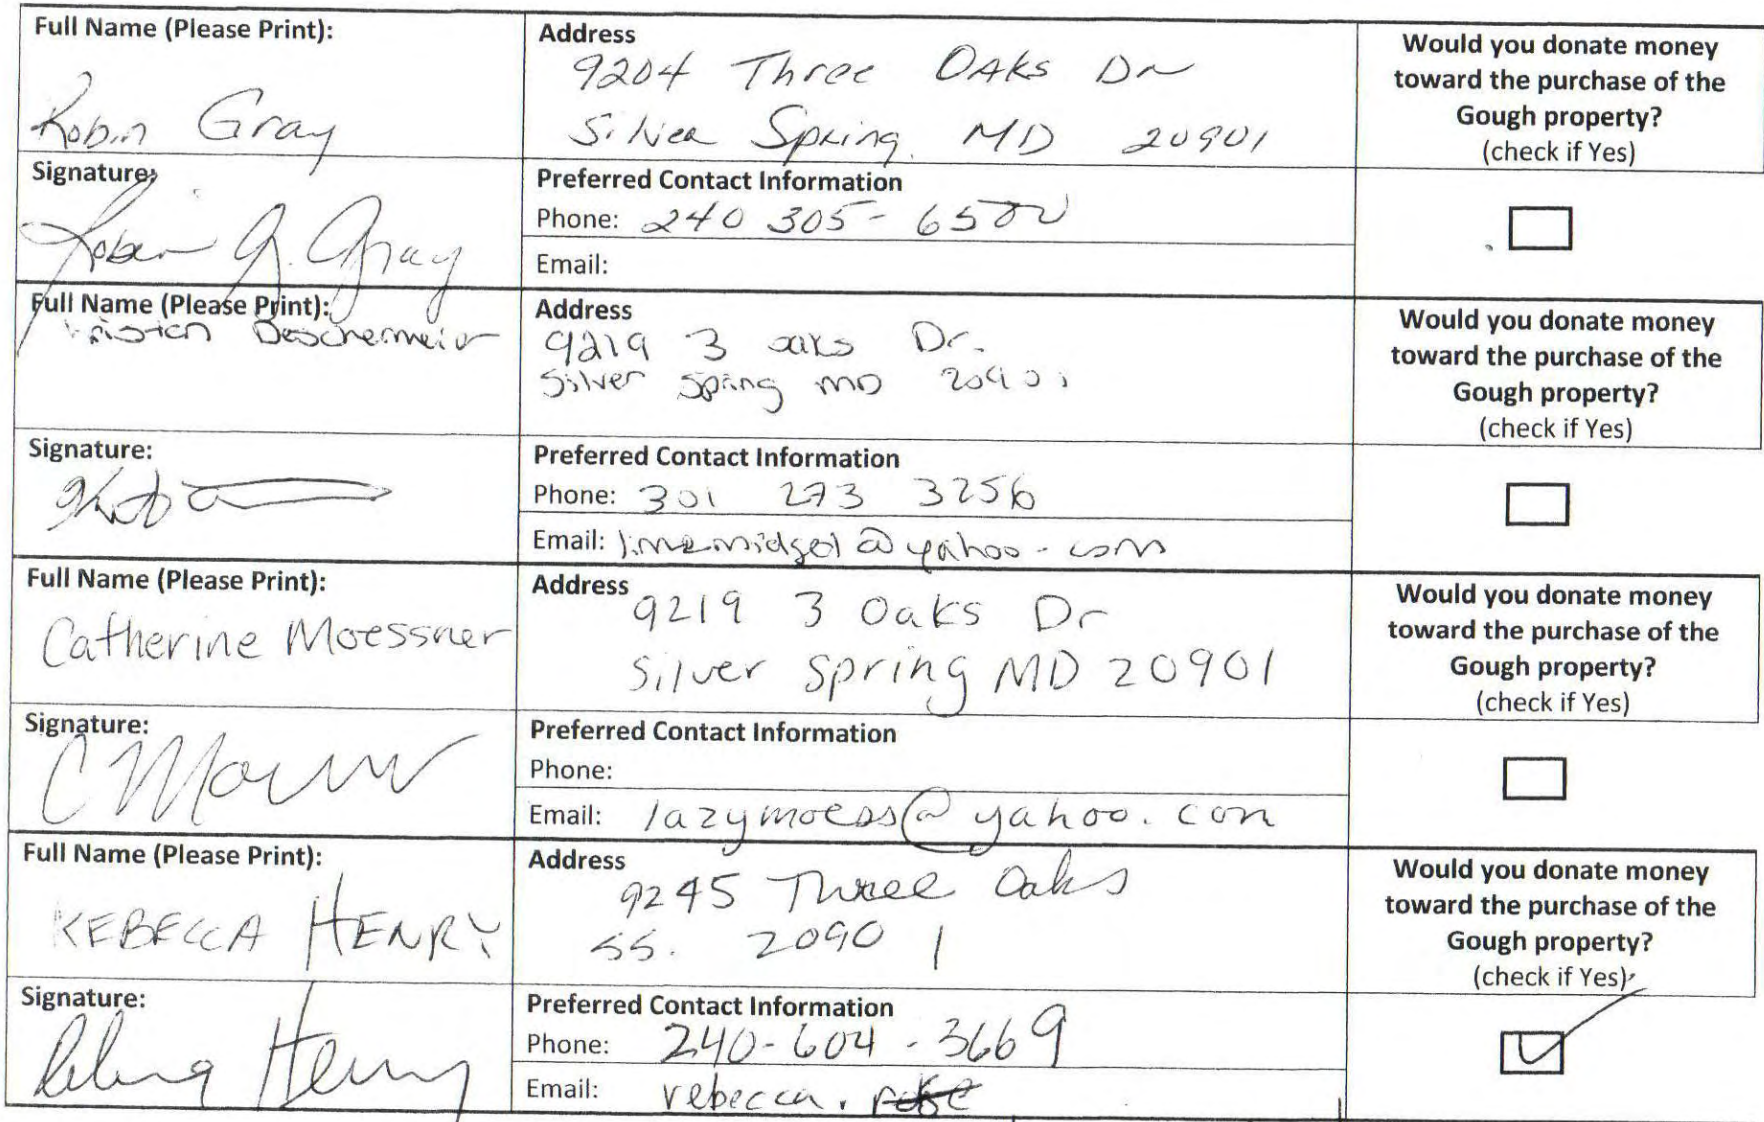 Full Name (Please Print):
Robin Gray
Address
9204 Three OAKs Dr
Silver Spring MD 20901
Would you donate money
toward the purchase of the
Gough property?
(check if Yes)
Signature:
Robin G. Gray
Preferred Contact Information
Phone: 240 305-6500
Email:
Full Name (Please Print):
Kristen Deschermeier
Address
9219 3 oaks Dr.
Silver Spring MD 20901
Would you donate money
toward the purchase of the
Gough property?
(check if Yes)
Signature:
Preferred Contact Information
Phone: 301 273 3256
Email:
Full Name (Please Print):
Catherine Moessner
Address
9219 3 Oaks Dr
Silver Spring MD 20901
Would you donate money
toward the purchase of the
Gough property?
(check if Yes)
Signature:
Preferred Contact Information
Phone:
Email: lazymoess@yahoo.com
Full Name (Please Print):
REBECCA HENRY
Address
9245 Three Oaks
SS. 20901
Would you donate money
toward the purchase of the
Gough property?
(check if Yes)
Signature:
Henry
Preferred Contact Information
Phone: 240-604-3669
Email: rebecca.